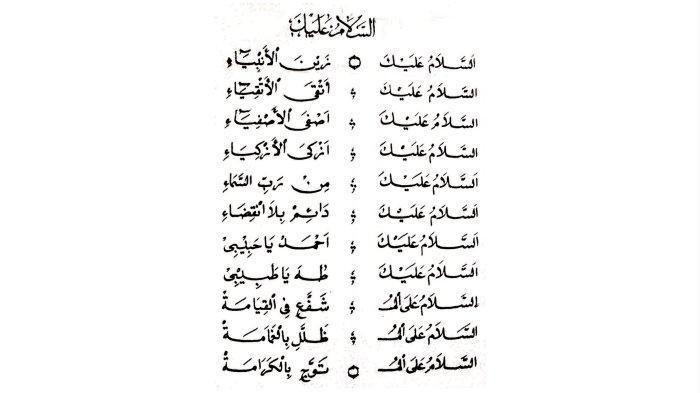 السَّلَامُ عَلَيْكَ
السَّلَامُ عَلَيْكَ زَيْنَ الْأَنْبِيَاءِ
السَّلَامُ عَلَيْكَ أَتْقَى الْأَتْقِيَاءِ
السَّلَامُ عَلَيْكَ اَصْفَى الْأَصْفِيَاءِ
السَّلَامُ عَلَيْكَ اَزْكَى الْأَزْكِيَاءِ
السَّلَامُ عَلَيْكَ مِنْ رَبِّ السَّمَاءِ
السَّلَامُ عَلَيْكَ دَائِمْ بِلَا انْقِضَاءِ
السَّلَامُ عَلَيْكَ اَحْمَدُ يَا حَبِيْبِيْ
السَّلَامُ عَلَيْكَ طٰهَ يَا طَبِيْبِيْ
السَّلَامُ عَلَى الْمُ شَفَّعِ فِي الْقِيَامَةْ
السَّلَامُ عَلَى الْمُ ظَلَّلِ بِالْغَمَامَةْ
السَّلَامُ عَلَى الْمُ تَوَّجِ بِالْكَرَامَةْ